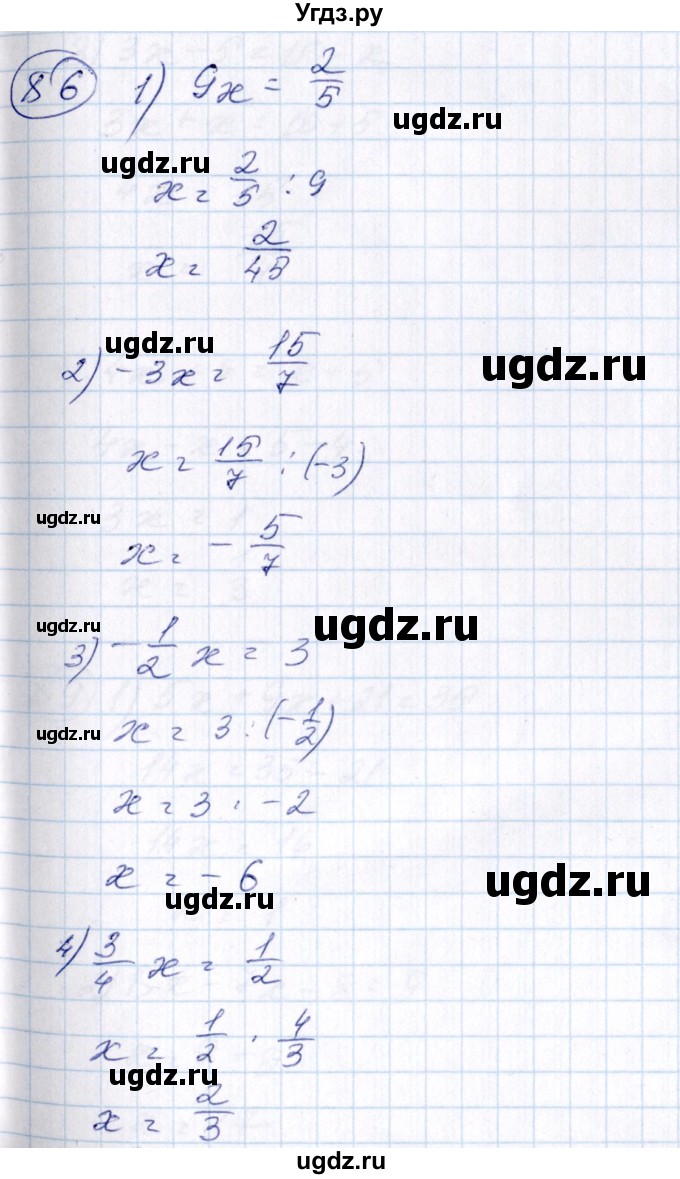 Угдз.ру
86 1) 9x = 2/5
ugdz.ru
ugdz.ru
x = 2/5 : 9
x = 2/45
ugdz.ru
2) -3x = 15/7
ugdz.ru
x = 15/7 : (-3)
ugdz.ru
x = - 5/7
ugdz.ru
ugdz.ru
3) -1/2 x = 3
ugdz.ru
x = 3 : (-1/2)
x = 3 · -2
x = - 6
ugdz.ru
ugdz.ru
4) 3/4 x = 1/2
x = 1/2 · 4/3
ugdz.ru
x = 2/3
ugdz.ru